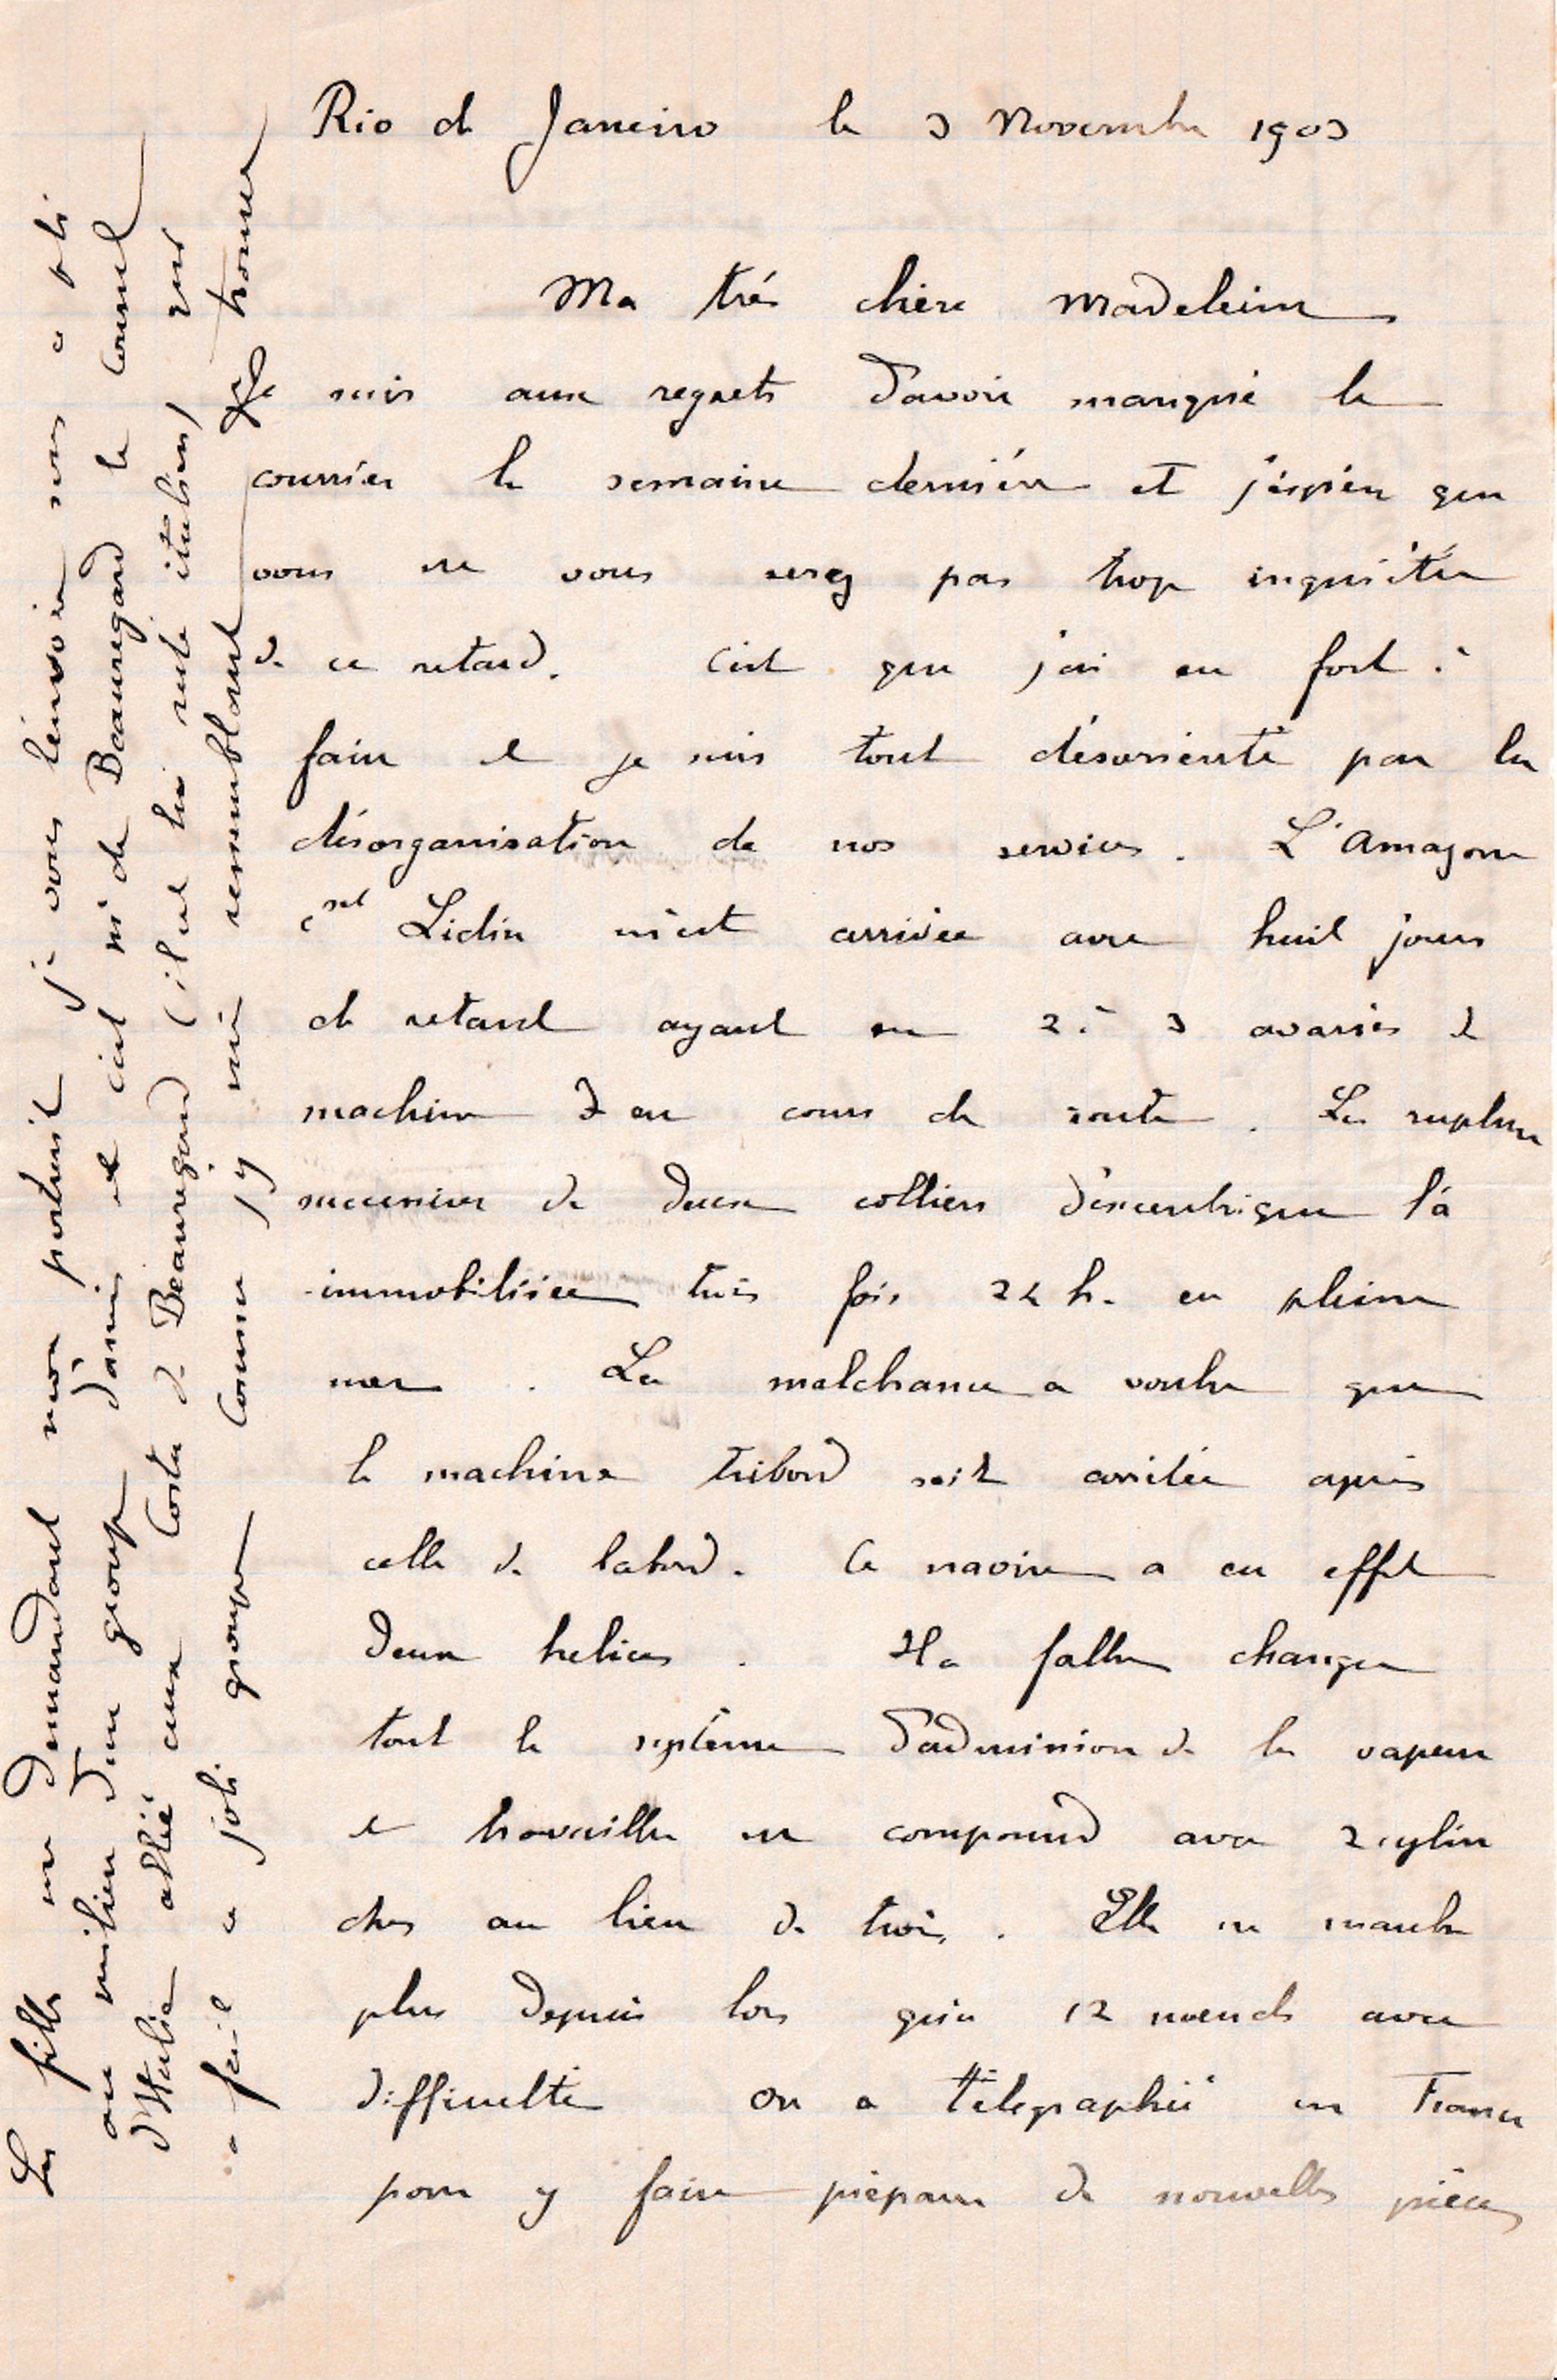 Rio de Janeiro le 3 Novembre 1903
Ma trés chère Madeleine
Je suis aux regrets d'avoir manqué le
courrier la semaine dernière et j'espère que
vous ne vous serez pas trop inquiétée
de ce retard. C'est que j'ai eu fort à
faire et je suis tout désorienté par la
désorganisation de nos services. L'Amazone
Cnt Lidin m'est arrivée avec huit jours
de retard ayant eu 2 à 3 avaries de
machine en cours de route. La rupture
successive de deux colliers d'excentrique l'a
immobilisée trois fois 24 h. en pleine
mer. La malchance a voulu que
la machine tribord soit arrêtée après
celle de babord. Ce navire a en effet
deux helices. Il a fallu changer
tout le système d'admission de la vapeur
et travailler en compound avec 2 cylin
dres au lieu de trois. Elle ne marche
plus depuis lors qu'à 12 nœuds avec
difficulté On a télégraphié en France
pour y faire préparer de nouvelles pièces
Les filles me demandant mon portrait je vous l'envoie sous ce pli
au milieu d'un groupe d'amis et c'est Mr de Beauregard le Consul
d'Italie allié aux Costa de Beauregard (il est lui même italien) qui
a fait ce joli groupe Comme j'y suis ressemblant je trouve